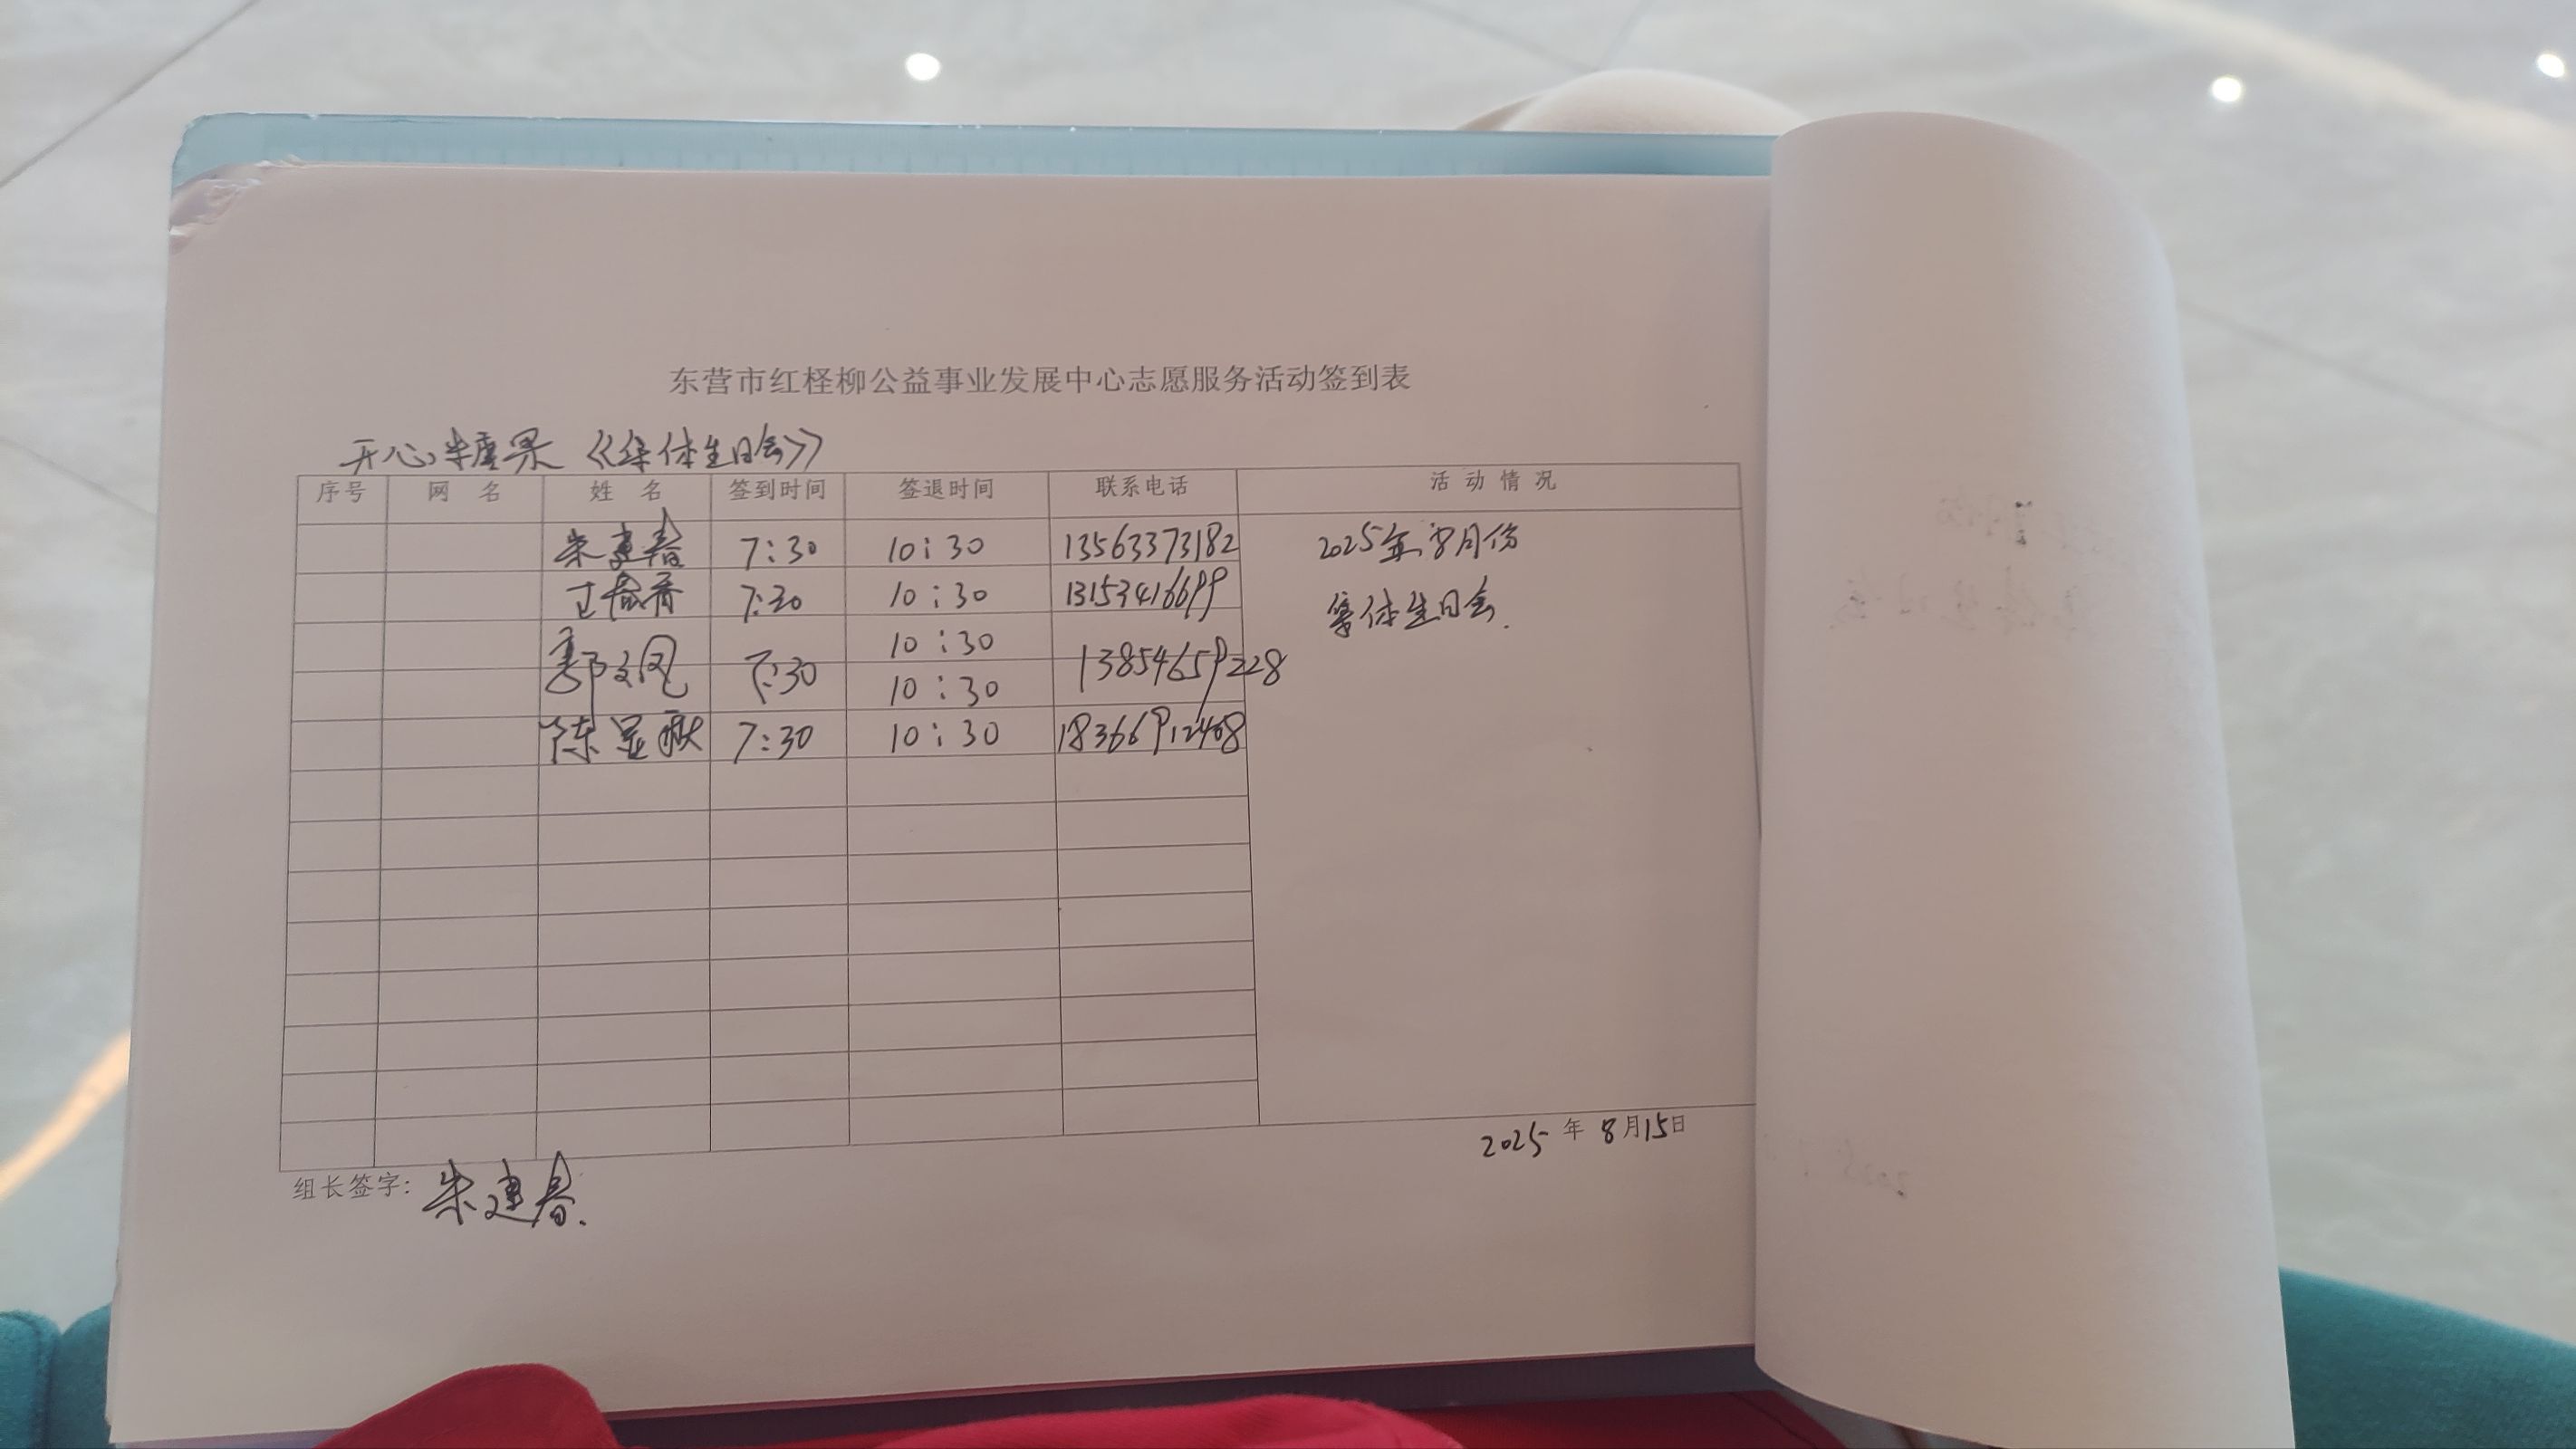 东营市红柽柳公益事业发展中心志愿服务活动签到表
开心糖果《集体生日会》
序号 网 名 姓 名 签到时间 签退时间 联系电话 活 动 情 况
朱建春 7:30 10:30 13563373182 2025年8月份
7:30 10:30 13153416699 集体生日会.
10:30
郭文凤 7:30 13854659228
10:30
陈显秋 7:30 10:30 18366912408
2025年8月15日
组长签字: 朱建春.